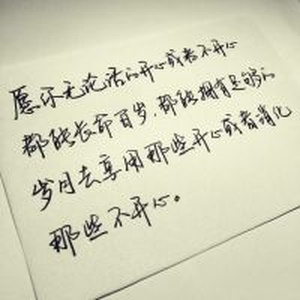 愿你无论活的开心或者不开心
都能长命百岁，都能拥有足够的
岁月去享用那些开心或者消化
那些不开心。